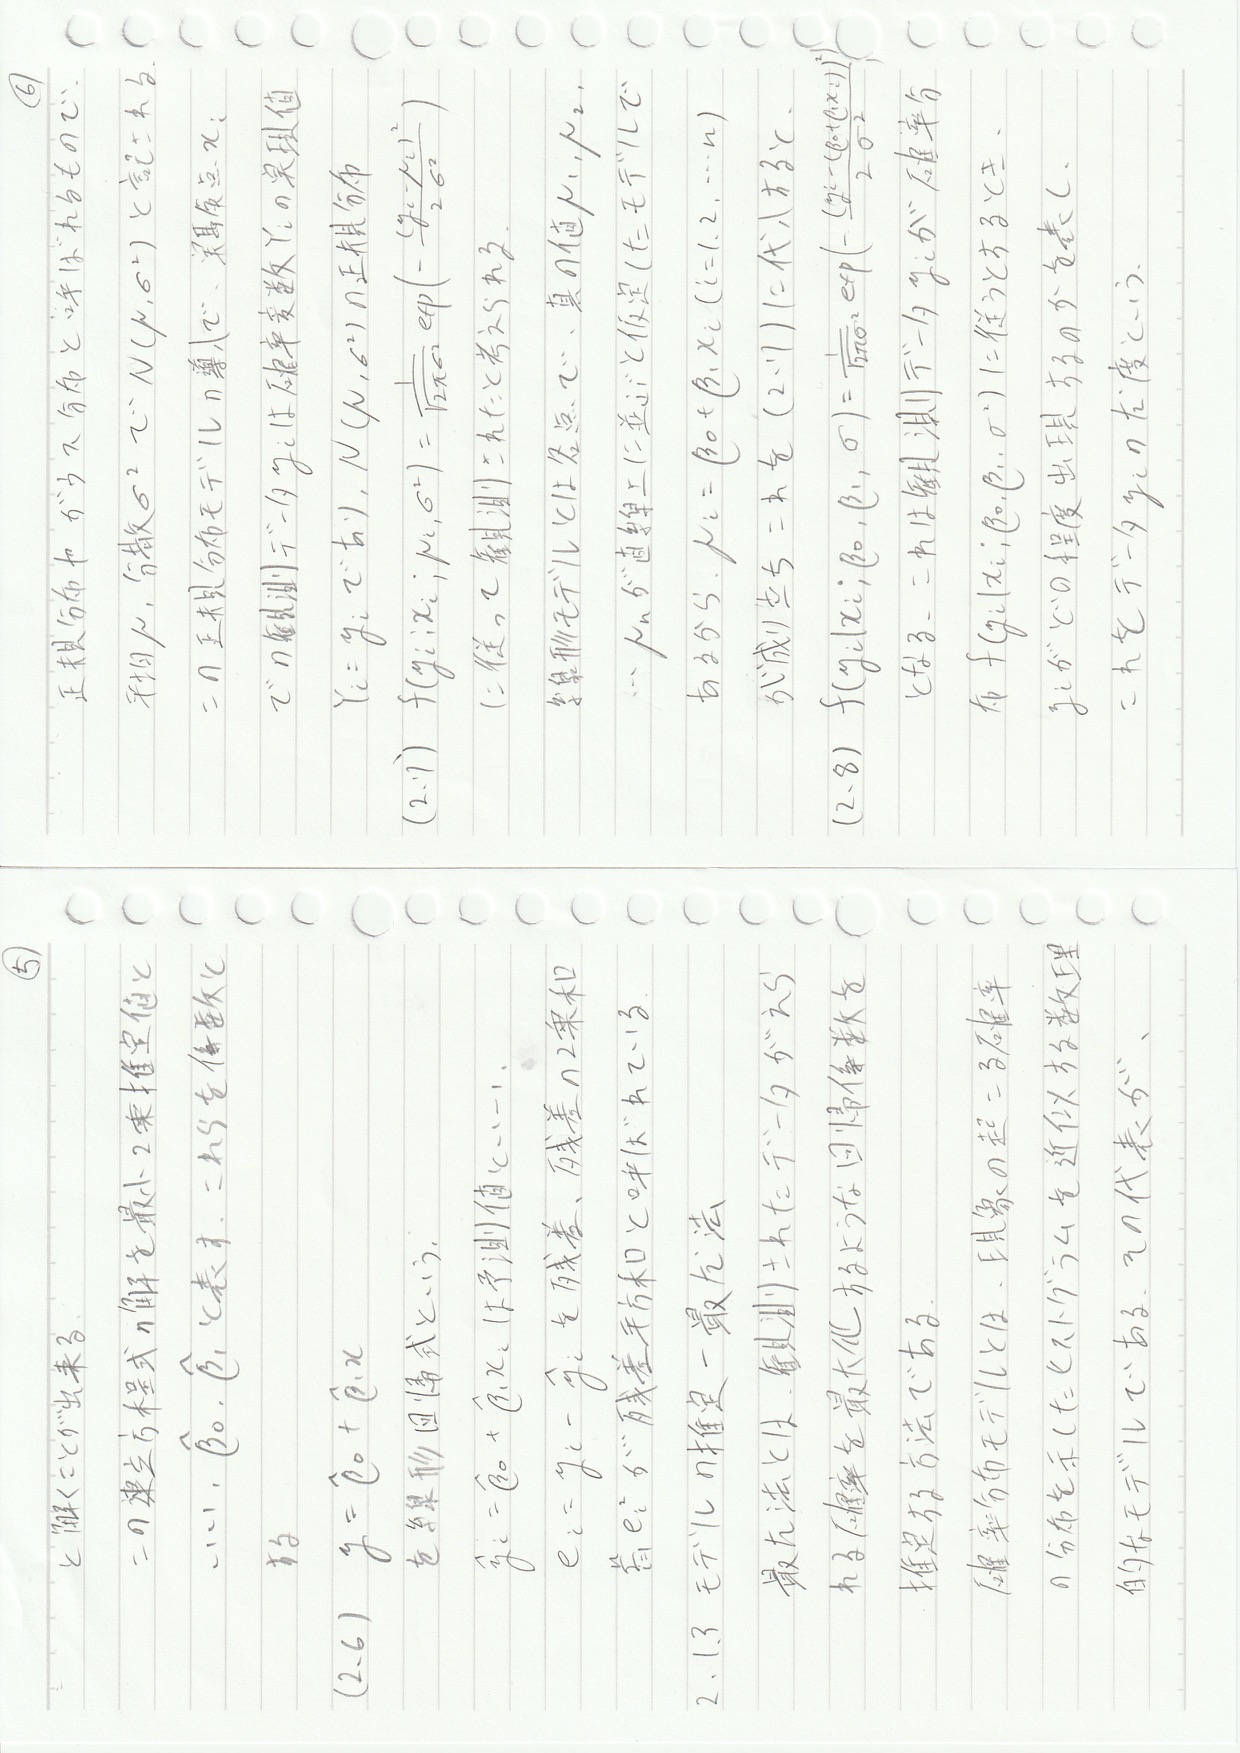 ⑤
と解くことが出来る.
この連立方程式の解を最小2乗推定値と
いい, β̂0, β̂1 と表す. これらを係数と
する
(2.6) y = β̂0 + β̂1x
を線形回帰式という.
ŷi = β̂0 + β̂1xi は予測値といい,
ei = yi − ŷi を残差、残差の2乗和
Σei² が残差平方和と呼ばれている.
2.1.3 モデルの推定−最尤法
最尤法とは、観測されたデータがえら
れる確率を最大化するような回帰係数を
推定する方法である.
確率分布モデルとは、現象の起こる確率
の分布を示したヒストグラムを近似する数理
的なモデルである. その代表が、
⑥
正規分布やガウス分布と呼ばれるもので.
平均μ, 分散σ² で N(μ,σ²) と記される.
この正規分布モデルの導入で、実験点xi
での観測データyiは確率変数Yiの実現値
Yi=yiであり, N(μ,σ²)の正規分布
(2.7) f(yi;xi;μi,σ²) = 1/√2πσ² exp(−(yi−μi)²/2σ²)
に従って観測されたと考えられる.
線形モデルとは各点で、真の値μ1,μ2,
…μnが直線上に並ぶと仮定したモデルで
あるから. μi = β0+β1xi (i=1,2,…n)
が成り立ち これを (2.7)に代入すると、
(2.8) f(yi|xi;β0,β1,σ) = 1/√2πσ² exp(−(yi−(β0+β1xi))²/2σ²)
となる. これは観測データyiが確率分
布 f(yi|xi;β0,β1,σ²)に従うとするとき、
yiがどの程度出現するのかを表し、
これをデータyiの尤度という.